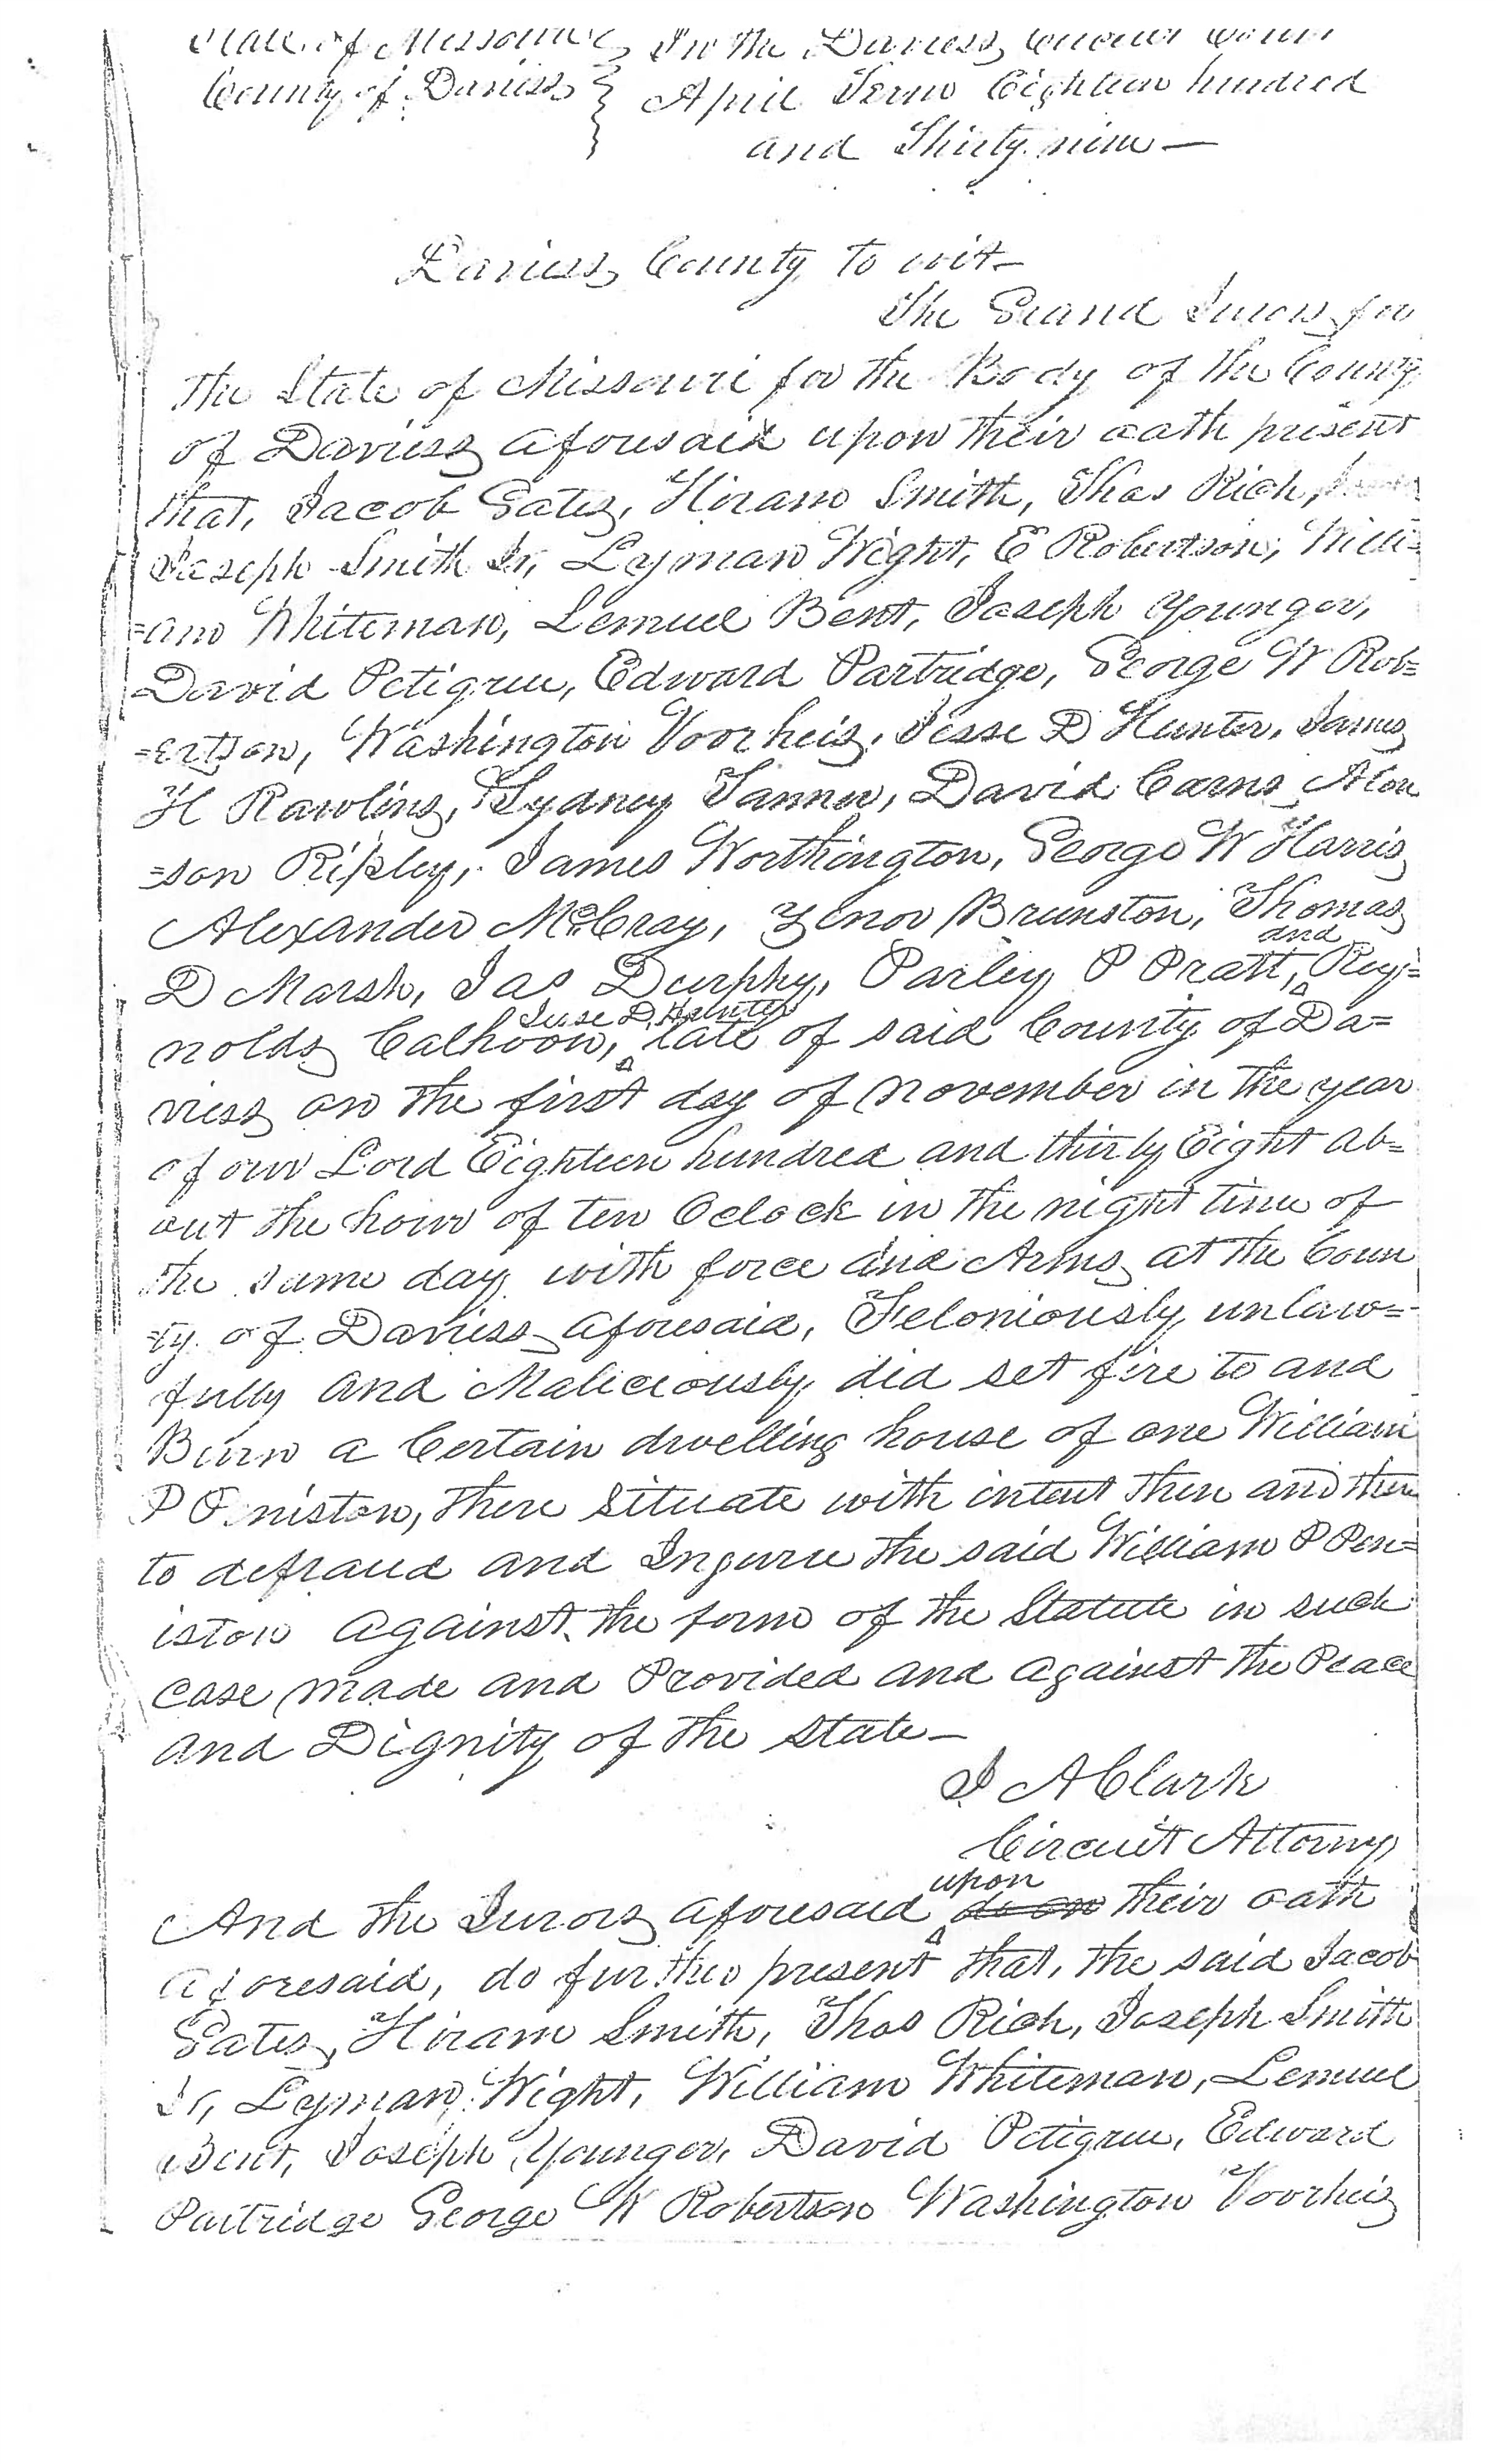 State of Missouri } In the Daviess Circuit Court
County of Daviess } April Term Eighteen hundred
and Thirty nine—
Daviess County to wit—
The Grand Jurors for
the State of Missouri for the Body of the County
of Daviess aforesaid upon their oath present
that, Jacob Gates, Hiram Smith, Thos Rich,
Joseph Smith Jr, Lyman Wight, E Robertson, Willi=
=am Whiteman, Lemuel Bent, Joseph Younger,
David Petigrue, Edward Partridge, George W Rob=
=ertson, Washington Voorheis, Jesse D Hunter, James
H Rawlins, Sydney Tanner, David Carns, Alon
=son Ripley, James Worthington, George W Harris
Alexander McCray, Zenor Brunston, Thomas
and
D Marsh, Jas Durphy, Parley P Pratt, Rey=
Jesse D. Hunter
nolds Calhoon, late of said County of Da=
viess on the first day of November in the year
of our Lord Eighteen hundred and thirty Eight ab=
out the hour of ten Oclock in the night time of
the same day with force and Arms at the Coun
=ty of Daviess aforesaid, Feloniously unlaw=
fully and Maliciously did set fire to and
Burn a Certain dwelling house of one William
P Peniston, there situate with intent then and there
to defraud and Ingure the said William P Pen=
iston against the form of the Statute in such
case made and Provided and against the Peace
and Dignity of the state—
J A Clark
Circuit Attorny
upon
And the Jurors aforesaid do on their oath
aforesaid, do further present that, the said Jacob
Gates, Hiram Smith, Thos Rich, Joseph Smith
Jr, Lyman Wight, William Whiteman, Lemuel
Bent, Joseph Younger, David Petigrue, Edward
Partridge George W Robertson Washington Voorheis